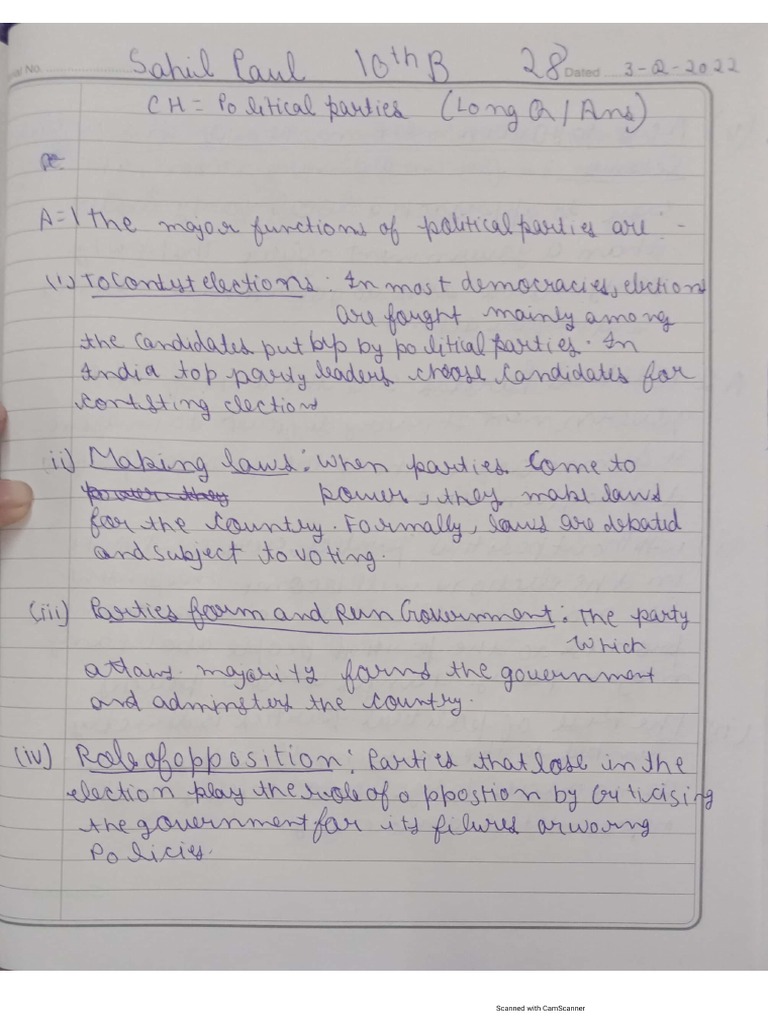 Sahil Paul 10th B 28 Dated 3-2-2022
CH = Political parties (Long Q/Ans)
A=1 the major functions of political parties are :-
(i) To Contest elections : In most democracies, elections
are fought mainly among
the candidates put by political parties. In
India top party leaders choose candidates for
contisting elections
ii) Making laws : When parties come to
power they power, they make laws
for the country. Formally, laws are debated
and subject to voting.
(iii) Parties form and Run Government : The party
which
attains majority forms the government
and administers the country.
(iv) Role of opposition : Parties that lose in the
election play the role of oppostion by Criticising
the government for its filures or worng
Policies.
Scanned with CamScanner